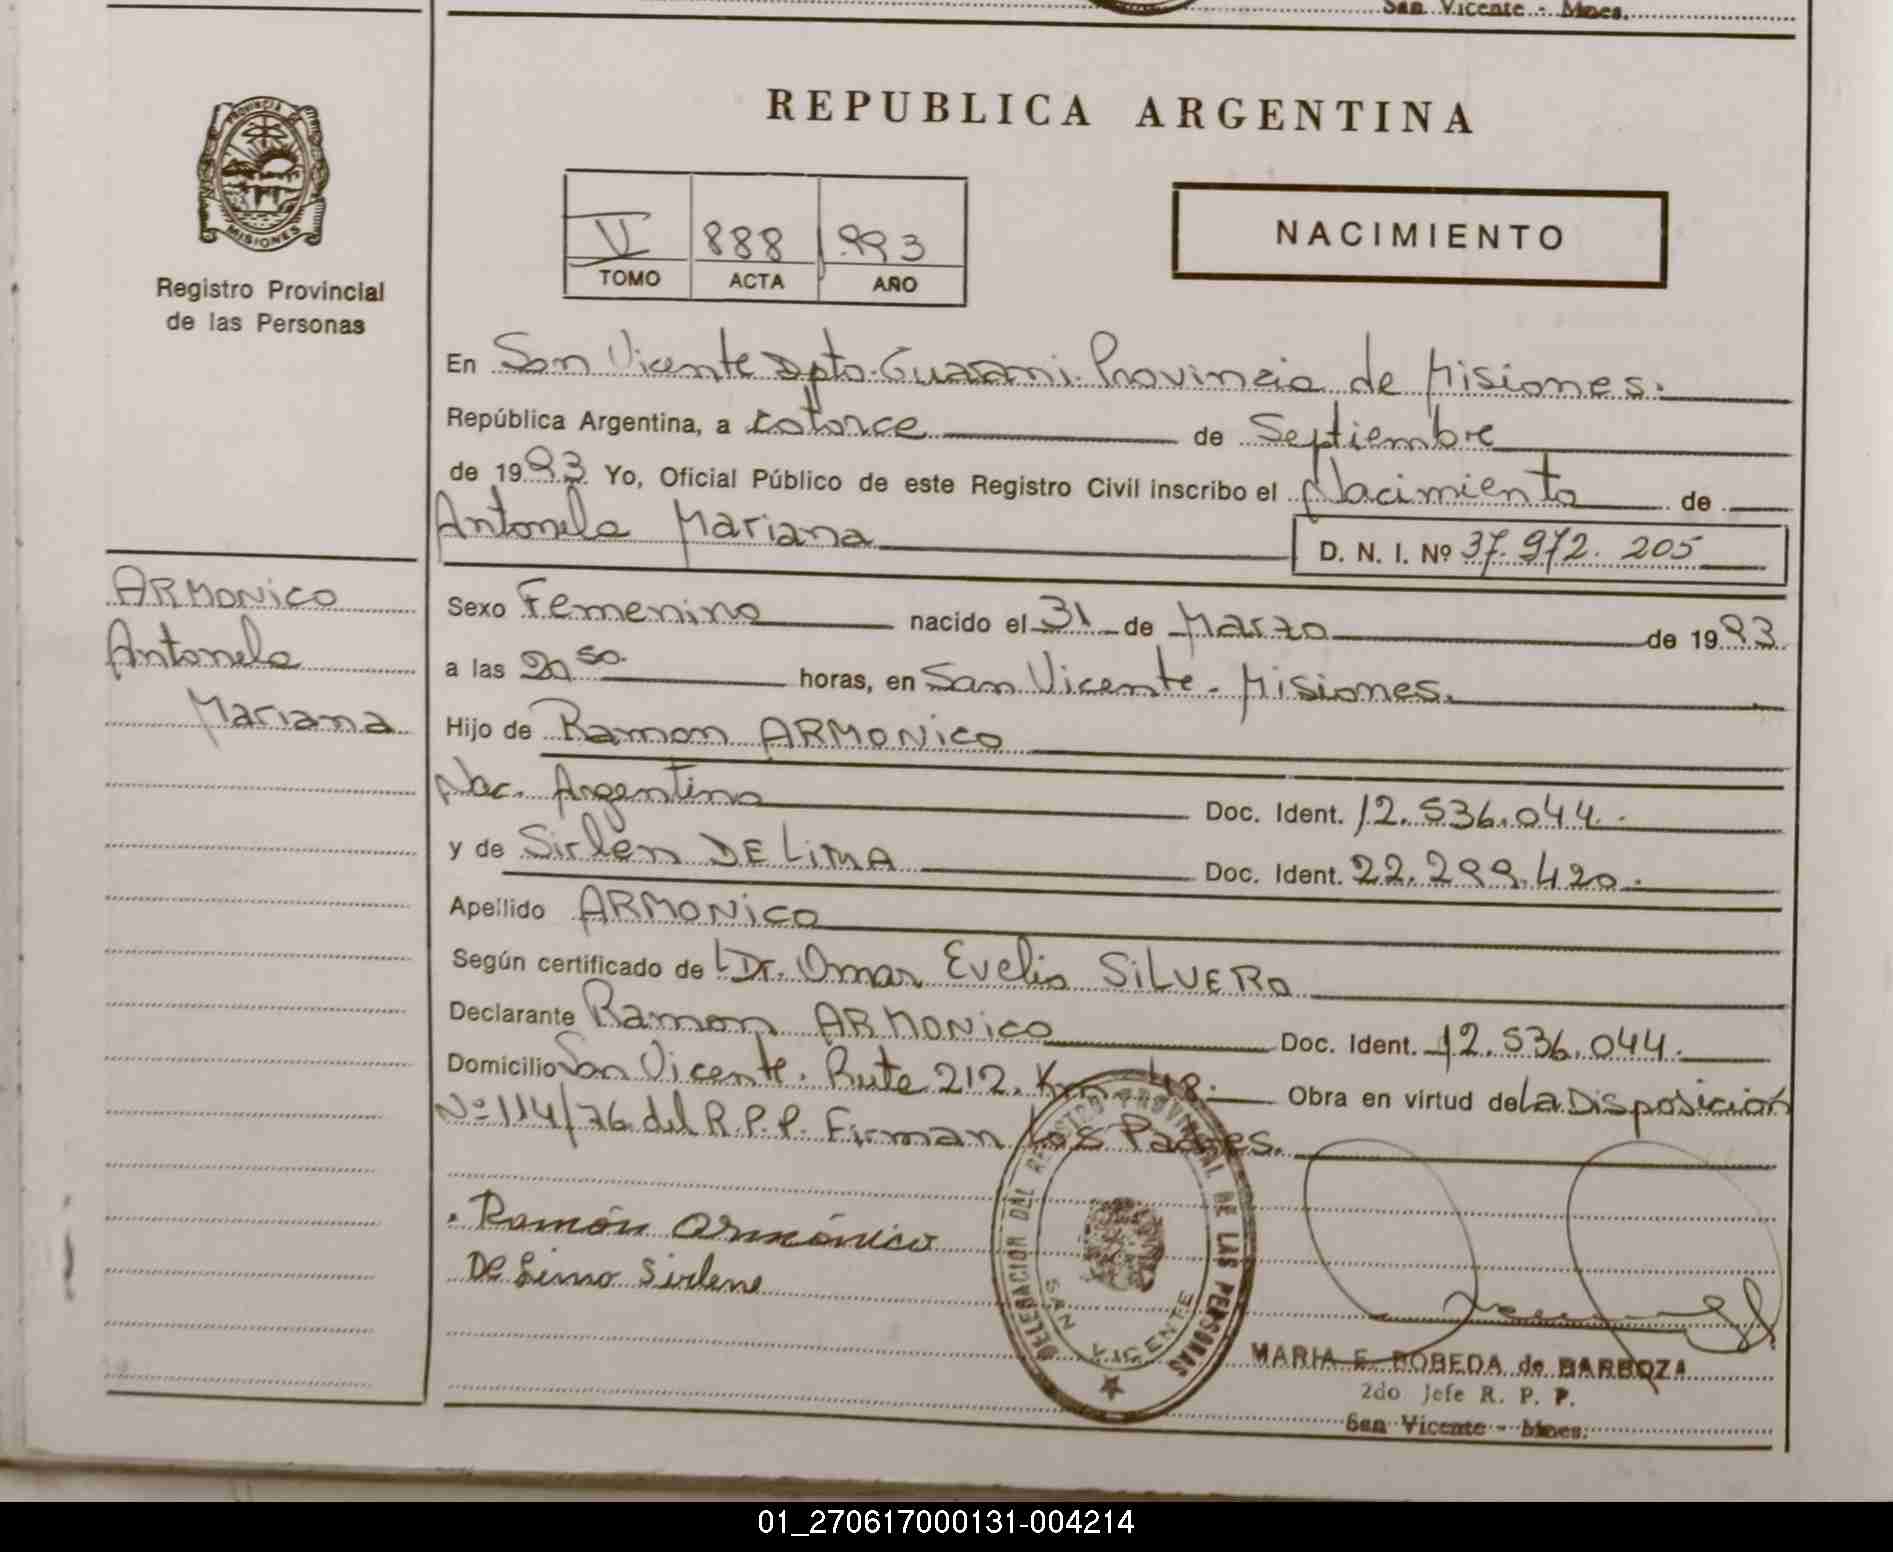 San Vicente - Mnes.
REPUBLICA ARGENTINA
PROVINCIA DE
MISIONES
Registro Provincial
de las Personas
V 888 1.993
TOMO ACTA AÑO
NACIMIENTO
En San Vicente Dpto. Guarani. Provincia de Misiones.
República Argentina, a catorce de Septiembre
de 1993 Yo, Oficial Público de este Registro Civil inscribo el Nacimiento de
Antonela Mariana D. N. I. Nº 37.972.205
ARMONICO
Antonela
Mariana
Sexo Femenino nacido el 31 de Marzo de 1993
a las 20 50 horas, en San Vicente - Misiones.
Hijo de Ramon ARMONICO
Nac. Argentino Doc. Ident. 12.536.044.
y de Sirlen DE LIMA Doc. Ident. 22.299.420.
Apellido ARMONICO
Según certificado de Dr. Omar Evelio SILVERO
Declarante Ramon ARMONICO Doc. Ident. 12.536.044.
Domicilio San Vicente. Ruta 212. Km 48. Obra en virtud de La Disposición
Nº 114/76 del R.P.P. Firman los Padres.
Ramón Armónico
De Lima Sirlene
DELEGACION DEL REGISTRO PROVINCIAL DE LAS PERSONAS
SAN VICENTE
MARIA E. BOBEDA de BARBOZA
2do Jefe R. P. P.
San Vicente - Mnes.
01_270617000131-004214